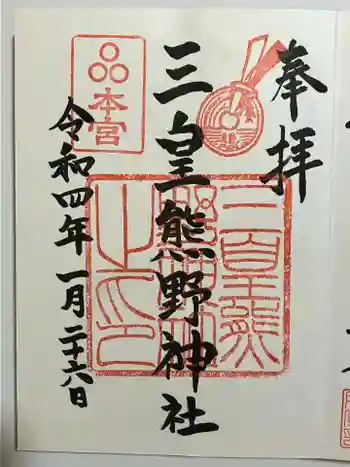 奉拝
三皇熊野神社
本宮
令和四年一月二十六日
三皇熊
野神社
之印